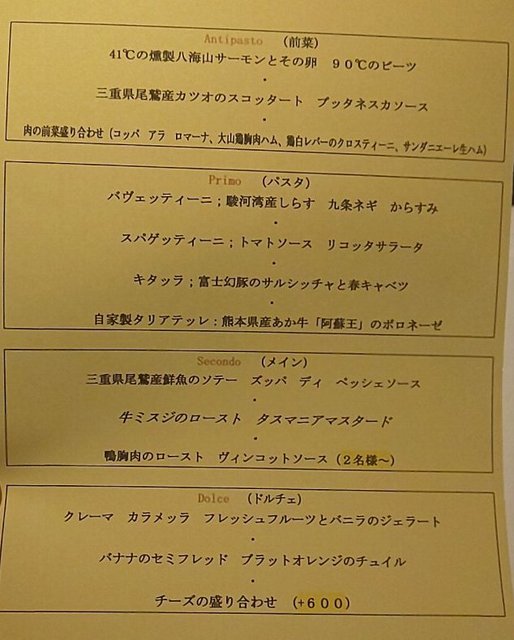 Antipasto （前菜）
41℃の燻製八海山サーモンとその卵　９０℃のビーツ
・
三重県尾鷲産カツオのスコッタート　プッタネスカソース
・
肉の前菜盛り合わせ（コッパ　アラ　ロマーナ、大山鶏胸肉ハム、鶏白レバーのクロスティーニ、サンダニエーレ生ハム）
Primo （パスタ）
バヴェッティーニ；駿河湾産しらす　九条ネギ　からすみ
・
スパゲッティーニ；トマトソース　リコッタサラータ
・
キタッラ；富士幻豚のサルシッチャと春キャベツ
・
自家製タリアテッレ；熊本県産あか牛「阿蘇王」のボロネーゼ
Secondo （メイン）
三重県尾鷲産鮮魚のソテー　ズッパ　ディ　ペッシェソース
・
牛ミスジのロースト　タスマニアマスタード
・
鴨胸肉のロースト　ヴィンコットソース（２名様～）
Dolce （ドルチェ）
クレーマ　カラメッラ　フレッシュフルーツとバニラのジェラート
・
バナナのセミフレッド　ブラットオレンジのチュイル
・
チーズの盛り合わせ　（+６００）